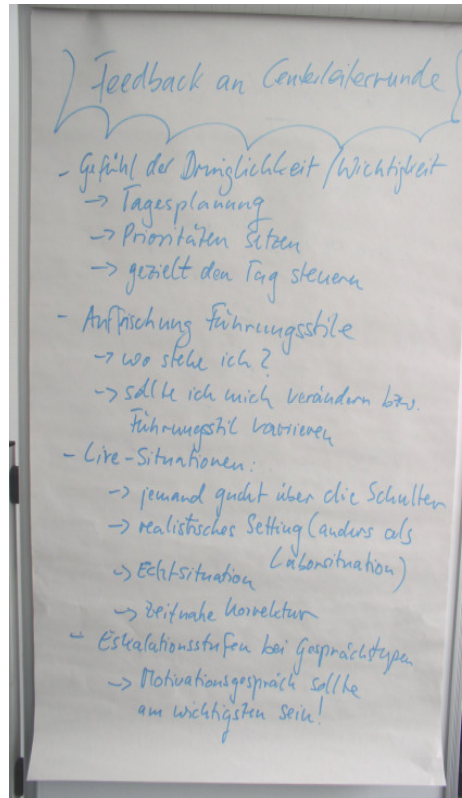 Feedback an Centerleiterrunde
- Gefühl der Dringlichkeit/Wichtigkeit
-> Tagesplanung
-> Prioritäten setzen
-> gezielt den Tag steuern
- Auffrischung Führungsstile
-> wo stehe ich?
-> sollte ich mich verändern bzw.
Führungsstil variieren
- Live-Situationen:
-> jemand guckt über die Schulter
-> realistisches Setting (anders als
Laborsituation)
-> Echtsituation
-> zeitnahe Korrektur
- Eskalationsstufen bei Gesprächstypen
-> Motivationsgespräch sollte
am wichtigsten sein!